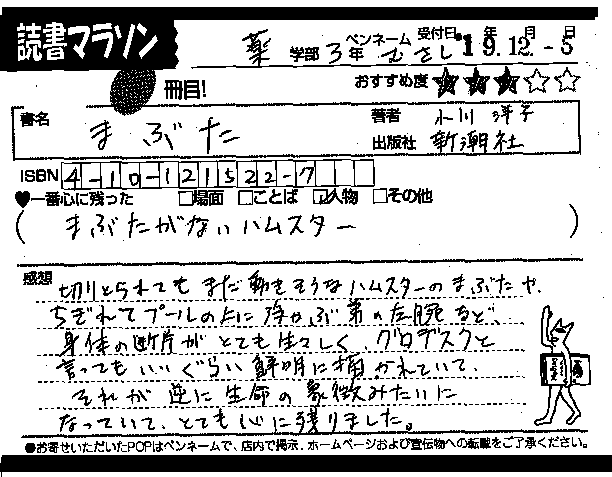 読書マラソン
薬 学部 3年 ペンネーム むさし 受付日 19.12.-5 年 月 日
冊目! おすすめ度 ★★★☆☆
書名 まぶた 著者 小川 洋子
出版社 新潮社
ISBN 4-10-121522-7
♥一番心に残った □場面 □ことば ☑人物 □その他
(まぶたがないハムスター)
感想
切りとられてもまだ動きそうなハムスターのまぶたや、
ちぎれてプールの上に浮かぶ弟の左腕など、
身体の断片がとても生々しく、グロデスクと
言ってもいいぐらい鮮明に描かれていて、
それが逆に生命の象徴みたいに
なっていて、とても心に残りました。
●お寄せいただいたPOPはペンネームで、店内で掲示、ホームページおよび宣伝物への転載をご了承ください。